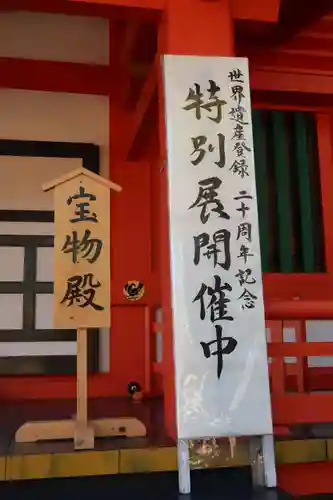 世界遺産登録二十周年記念
特別展開催中
宝物殿